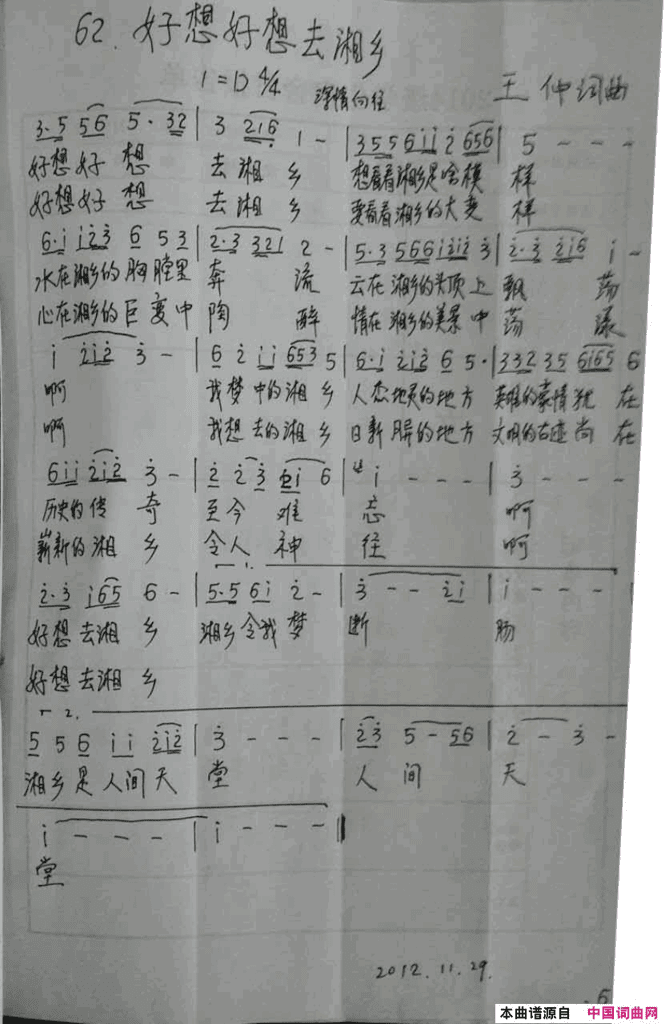 62. 好想好想去湘乡
1=D 4/4 深情向往 王 仲词曲
3·5 56 5·32 | 3 216 1 - | 3556ii2 656 | 5 - - -
好想好 想 去 湘 乡 想看看湘乡是啥模 样
好想好 想 去 湘 乡 要看看湘乡的大变 样
6·i i23 6 53 | 2·3 321 2 - | 5·3 566 i2i2 3 | 2·3 2i6 i -
水在湘乡的胸膛里 奔 流 云在湘乡的头顶上 飘 荡
心在湘乡的巨变中 陶 醉 情在湘乡的美景中 荡 漾
i 2i2 3 - | 6 2 ii 653 5 | 6·i 2i2 6 5· | 332 35 6i65 6
啊 我梦中的湘乡 人杰地灵的地方 英雄的豪情犹在
啊 我想去的湘乡 日新月异的地方 文明的古迹尚在
6ii 2i2 3 - | 2 23 2i 6 | i - - - | 3 - - -
历史的传 奇 至今难 忘 啊
崭新的湘 乡 令人神 往 啊
1.
2·3 i65 6 - | 5·5 6i 2 - | 3 - - 2i | i - - -
好想去湘 乡 湘乡令我梦 断 肠
好想去湘 乡
2.
5 5 6 ii 2i2 | 3 - - - | 23 5 - 56 | 2 - 3 -
湘乡是人间天 堂 人 间 天
i - - - | i - - - ‖
堂
2012.11.29.
.6
本曲谱源自 中国词曲网